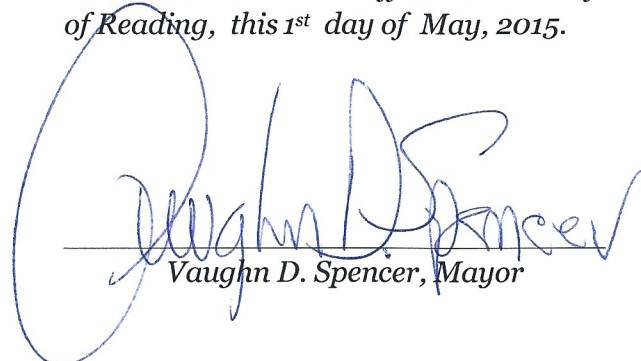 of Reading, this 1st day of May, 2015.
Vaughn D. Spencer
Vaughn D. Spencer, Mayor